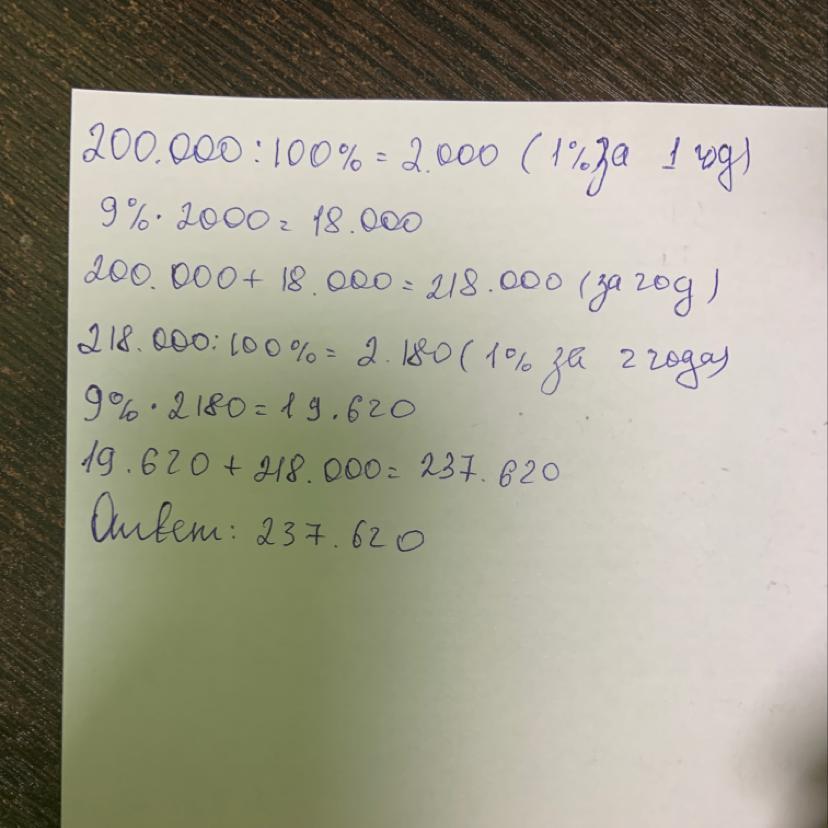 200.000:100%=2.000 (1% за 1 год)
9%·2000=18.000
200.000+18.000=218.000 (за год)
218.000:100%=2.180 (1% за 2 года)
9%·2180=19.620
19.620+218.000=237.620
Ответ: 237.620